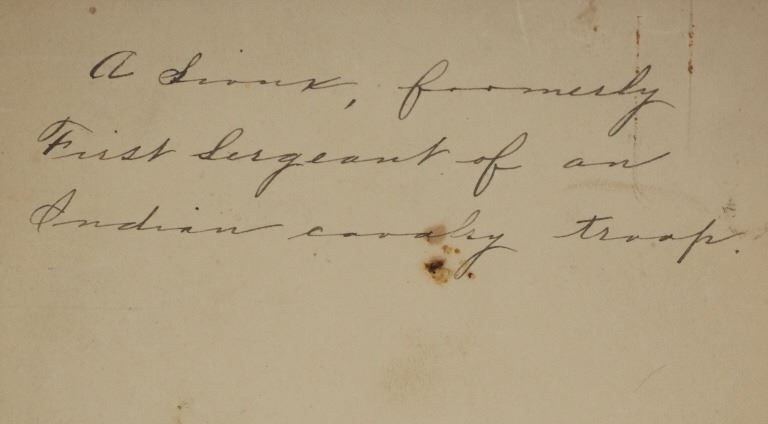 A Sioux, formerly
First Sergeant of an
Indian cavalry troop.